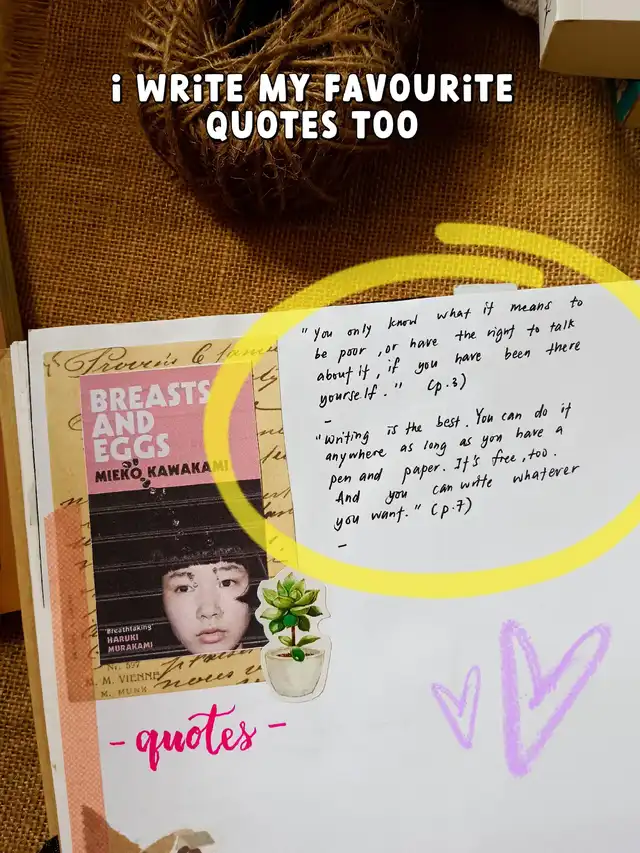 i WRiTE MY FAVOURiTE
QUOTES TOO
"You only know what it means to
be poor, or have the right to talk
about it, if you have been there
yourself." (p.3)
–
"Writing is the best. You can do it
anywhere as long as you have a
pen and paper. It's free, too.
And you can write whatever
you want." (p.7)
–
BREASTS
AND
EGGS
MIEKO KAWAKAMI
'Breathtaking'
HARUKI
MURAKAMI
M. M. VIENNE
M. MUNK
- quotes -